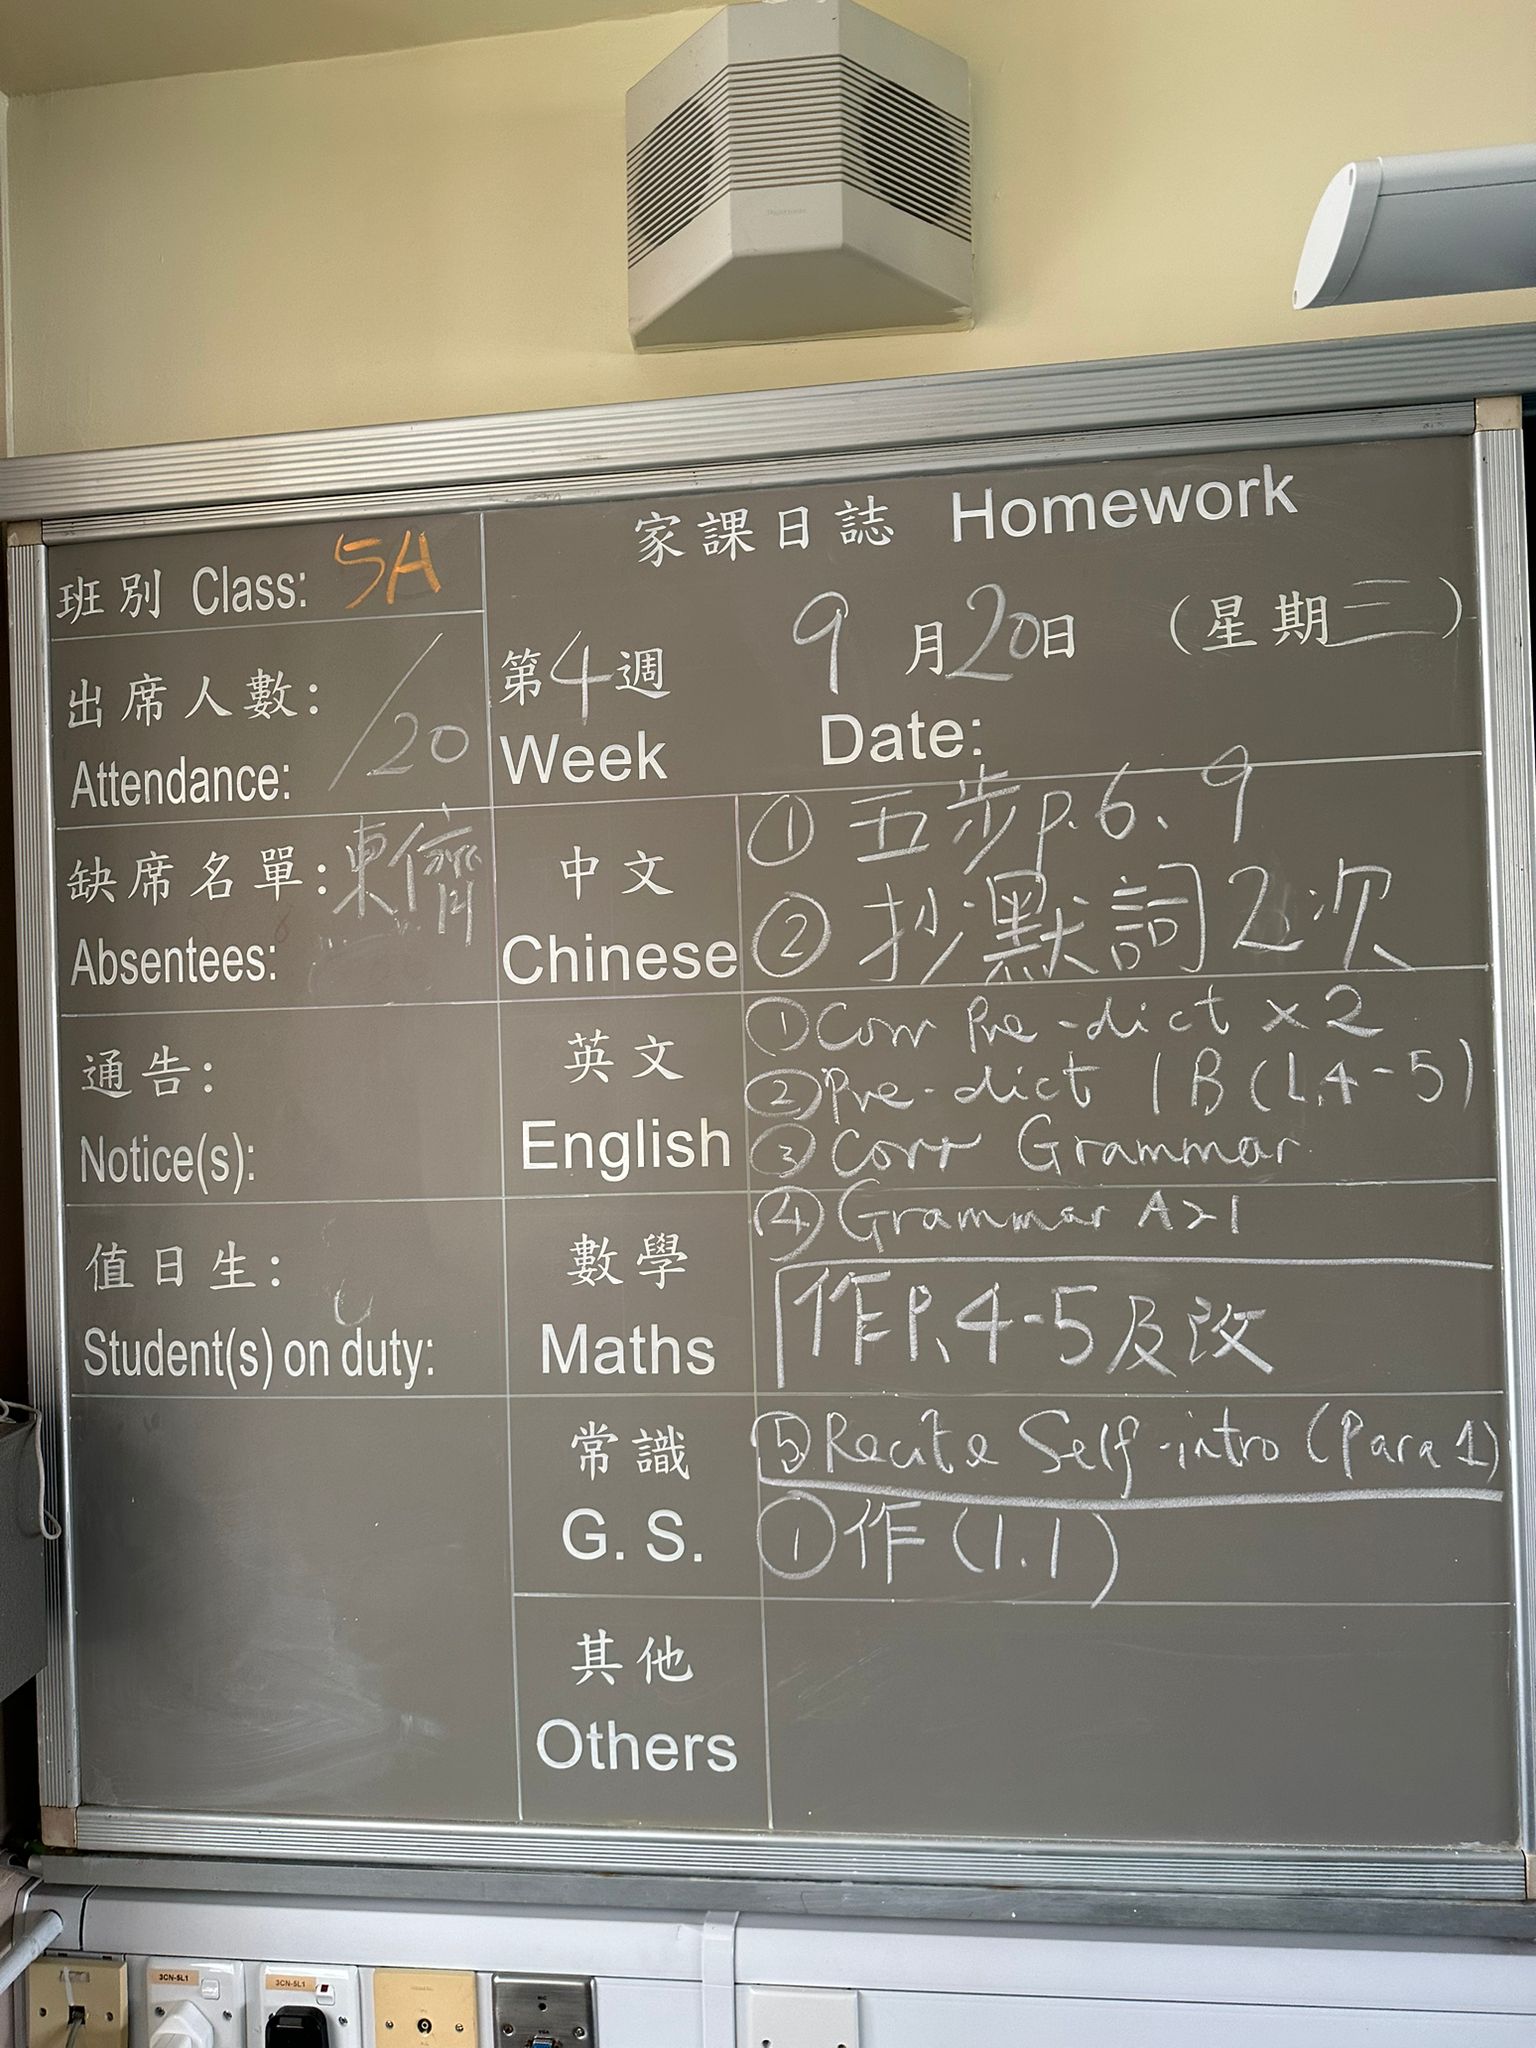 家課日誌 Homework
班別 Class: 5A
第4週 9月20日 (星期三)
Week Date:
出席人數: /20
Attendance:
缺席名單: 東儕
Absentees:
通告:
Notice(s):
值日生:
Student(s) on duty:
中文
Chinese
① 五步p.6、9
② 抄默詞2次
英文
English
① Corr Pre-dict x2
② Pre-dict 1B (L.4-5)
③ Corr Grammar
④ Grammar A>1
數學
Maths
作P.4-5及改
⑤ Recite Self-intro (Para 1)
常識
G. S.
① 作 (1.1)
其他
Others
3CN-5L1
3CN-5L1